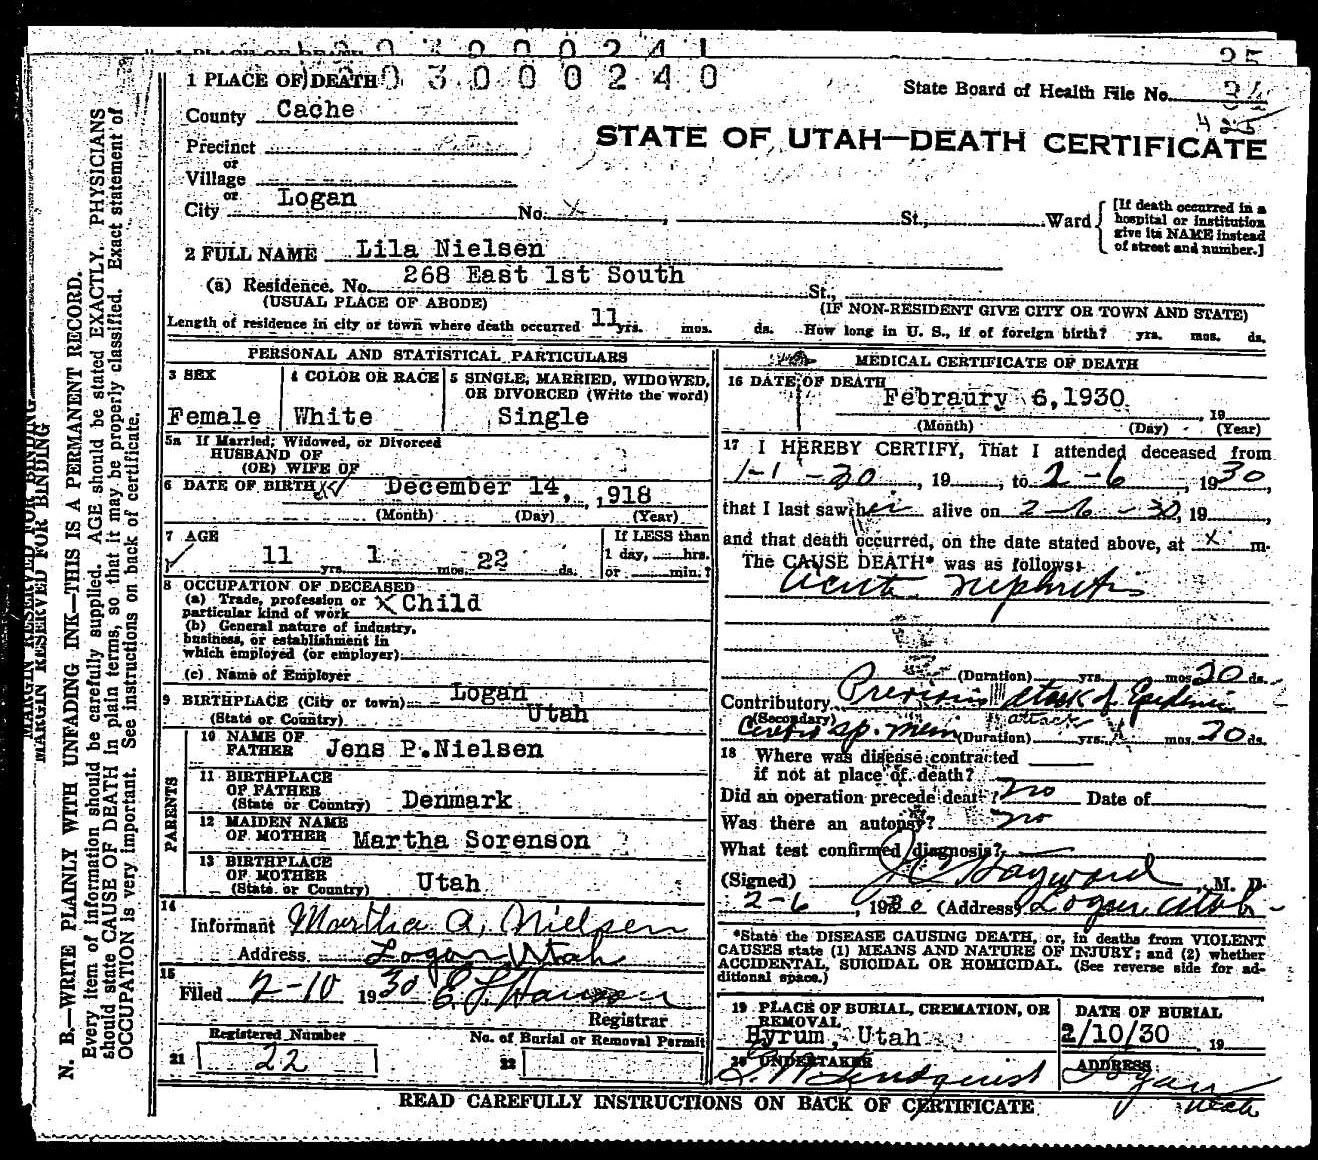 1 PLACE OF DEATH 3 0 0 0 2 4 0
State Board of Health File No.
County Cache
STATE OF UTAH—DEATH CERTIFICATE
Precinct
or
Village
or
City Logan No. x , St., Ward
[If death occurred in a
hospital or institution
give its NAME instead
of street and number.]
2 FULL NAME Lila Nielsen
(a) Residence. No. 268 East 1st South St.,
(USUAL PLACE OF ABODE) (IF NON-RESIDENT GIVE CITY OR TOWN AND STATE)
Length of residence in city or town where death occurred 11 yrs. mos. ds. How long in U. S., if of foreign birth? yrs. mos. ds.
PERSONAL AND STATISTICAL PARTICULARS
3 SEX 4 COLOR OR RACE 5 SINGLE, MARRIED, WIDOWED,
OR DIVORCED (Write the word)
Female White Single
5a If Married, Widowed, or Divorced
HUSBAND OF
(OR) WIFE OF
6 DATE OF BIRTH December 14, ,918
(Month) (Day) (Year)
7 AGE If LESS than
1 day, hrs.
11 yrs. 1 mos. 22 ds. or min.?
8 OCCUPATION OF DECEASED
(a) Trade, profession or
particular kind of work X Child
(b) General nature of industry,
business, or establishment in
which employed (or employer)
(c) Name of Employer
9 BIRTHPLACE (City or town) Logan
(State or Country) Utah
PARENTS
10 NAME OF
FATHER Jens P.Nielsen
11 BIRTHPLACE
OF FATHER
(State or Country) Denmark
12 MAIDEN NAME
OF MOTHER Martha Sorenson
13 BIRTHPLACE
OF MOTHER
(State or Country) Utah
14
Informant Martha A. Nielsen
Address Logan, Utah
15
Filed 2-10 1930
Registrar
Registered Number No. of Burial or Removal Permit
21 22 22
MEDICAL CERTIFICATE OF DEATH
16 DATE OF DEATH
Febraury 6,1930 , 19
(Month) (Day) (Year)
17 I HEREBY CERTIFY, That I attended deceased from
1-1-30, 19 , to 2-6, 1930,
that I last saw her alive on 2-6-30, 19 ,
and that death occurred, on the date stated above, at x m.
The CAUSE DEATH* was as follows:
Acute nephritis
(Duration) yrs. mos. 20 ds.
Contributory Previous attack of Epidemic
(Secondary) attack
Cerebro sp. Men (Duration) yrs. mos. 20 ds.
18 Where was disease contracted
if not at place of death?
Did an operation precede death? no Date of
Was there an autopsy? no
What test confirmed diagnosis?
(Signed) Hayward, M. D.
2-6, 1930 (Address) Logan, Utah
*State the DISEASE CAUSING DEATH, or, in deaths from VIOLENT
CAUSES state (1) MEANS AND NATURE OF INJURY; and (2) whether
ACCIDENTAL, SUICIDAL OR HOMICIDAL. (See reverse side for ad-
ditional space.)
19 PLACE OF BURIAL, CREMATION, OR
REMOVAL
Hyrum, Utah
DATE OF BURIAL
2/10/30 19
20 UNDERTAKER
Lindquist
ADDRESS
Logan
Utah
READ CAREFULLY INSTRUCTIONS ON BACK OF CERTIFICATE
MARGIN RESERVED FOR BINDING
N. B.—WRITE PLAINLY WITH UNFADING INK—THIS IS A PERMANENT RECORD.
Every item of information should be carefully supplied. AGE should be stated EXACTLY. PHYSICIANS
should state CAUSE OF DEATH in plain terms, so that it may be properly classified. Exact statement of
OCCUPATION is very important. See instructions on back of certificate.